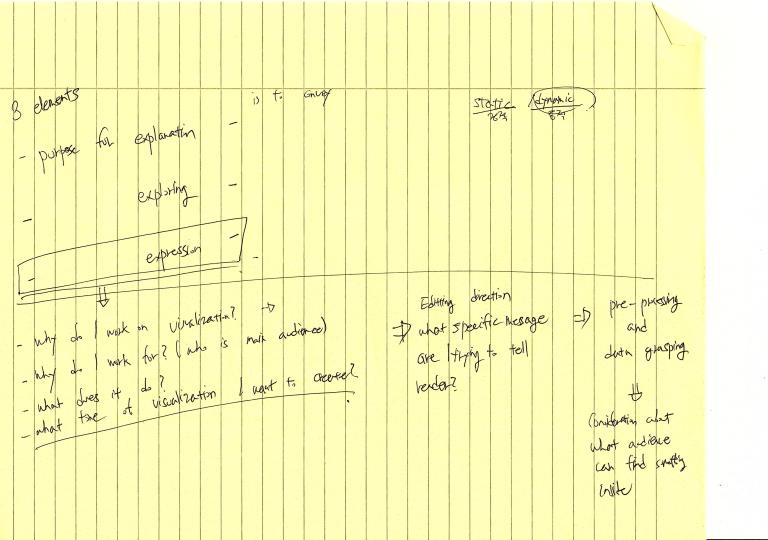 8 elements
is to convey
static
dynamic
- purpose for explanation -
- exploring -
- expression -
- why do I work on visualization? →
- why do I work for? (who is main audience)
- what does it do?
- what type of visualization I want to create?
Editing direction
⇒ what specific message
are I trying to tell
reader?
⇒ pre-processing
and
data grasping
⇓
Consideration about
what audience
can find